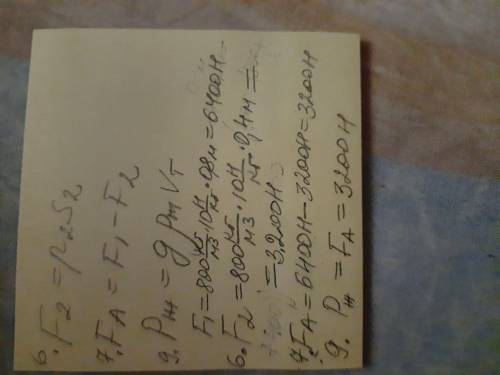 6. F₂ = p₂S₂
7. F_A = F₁ - F₂
9. P_ж = g ρ_ж V_т
F₁ = 800 кг/м3 · 10 Н/кг · 0,8 м = 6400 Н
6. F₂ = 800 кг/м3 · 10 Н/кг · 0,4 м =
= 3200 Н
7. F_A = 6400 Н - 3200 Н = 3200 Н
9. P_ж = F_A = 3200 Н